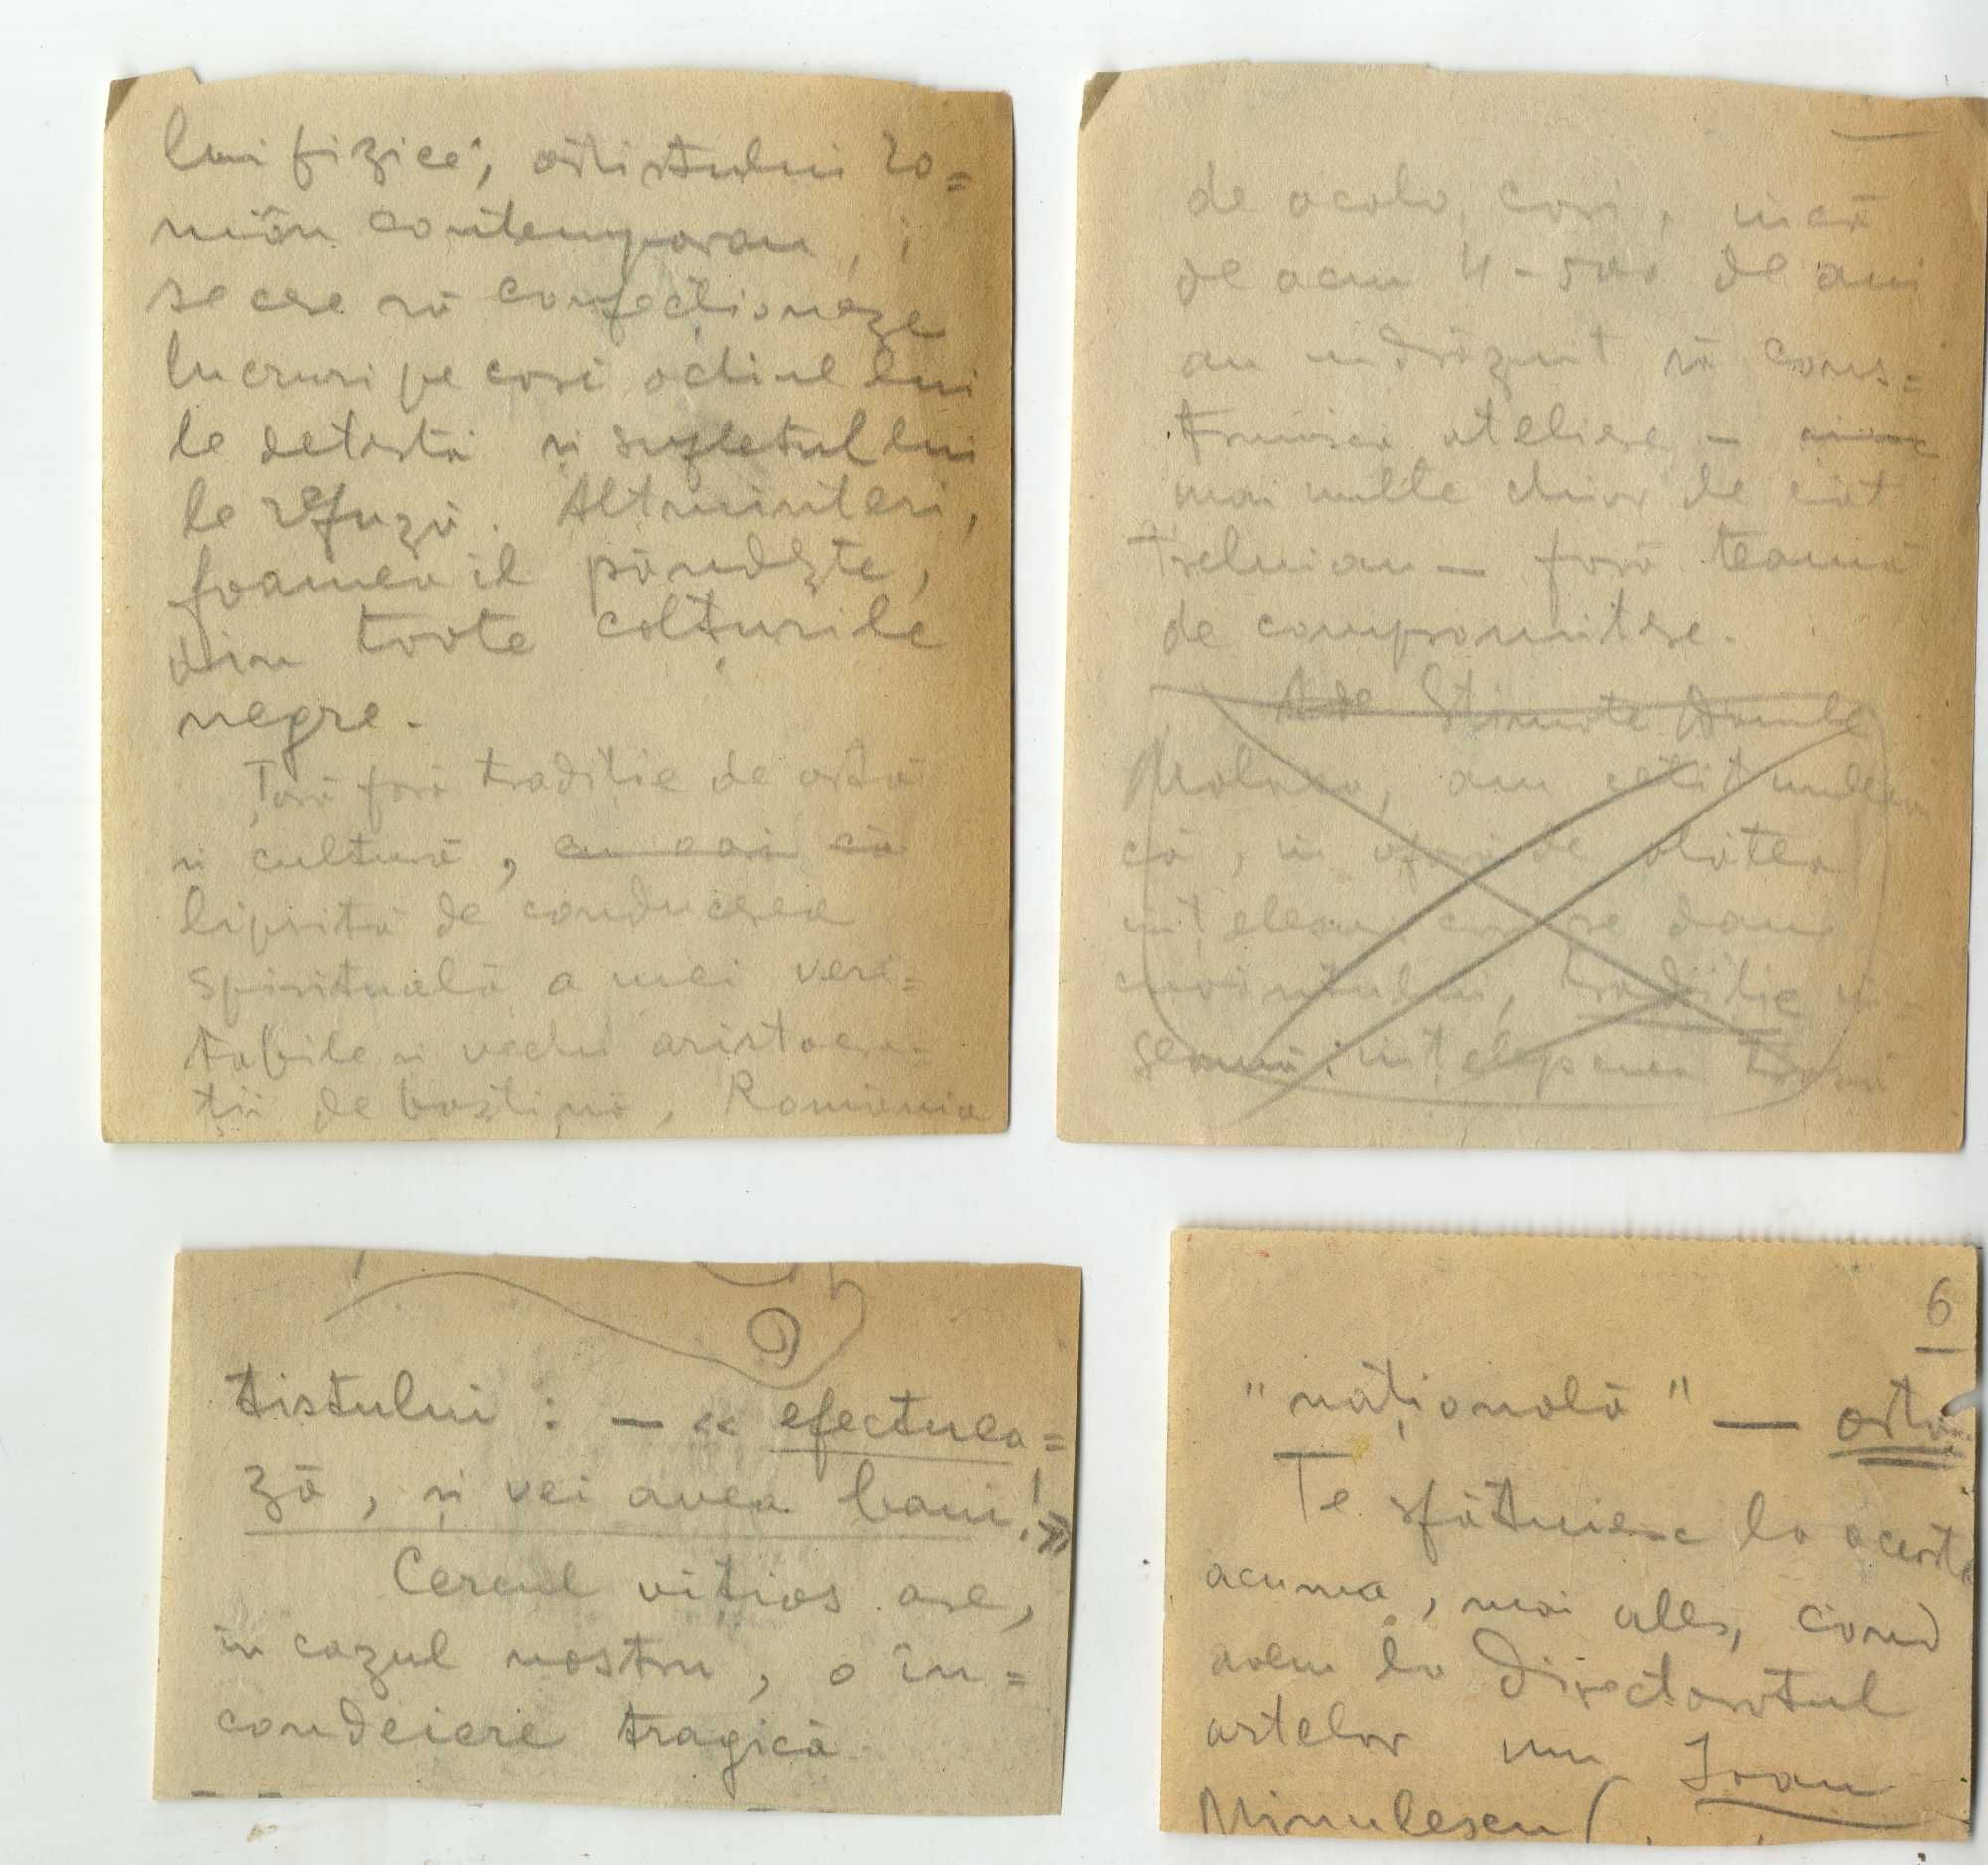 lui fizice", artistului ro=
mân contemporan, i
se cere să confecționeze
lucruri pe cari ochiul lui
le detestă și sufletul lui
le refuză. Altminteri,
foamea îl pândește,
din toate colțurile
negre.
Țară fără tradiție de artă
și cultură,
lipsită de conducerea
spirituală a unei veri=
tabile și vechi aristocra=
ții de baștină, România
de acolo, cari, încă
de acum 4-500 de ani
au îndrăznit să cons=
truiască ateliere –
mai multe chiar de cât
trebuiau – fără teamă
de compromitere.
Stimate Domnule
am citit undeva
că, în afară de
înțelesuri ce se dau
cuvântului, tradiție în=
seamnă: înțelepenea
tistului : – « efectuea=
ză, și vei avea bani! »
Cercul vițios are,
în cazul nostru, o în=
condeiere tragică.
6
"națională" — artă
Te sfătuiesc la aceasta
acuma, mai ales, când
avem la Directoratul
artelor un Ioan
Minulescu (